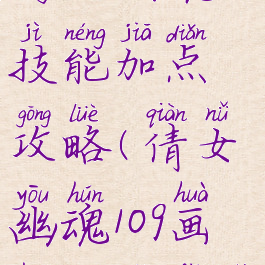 jì néng jiā diǎn
技能加点
gōng lüè qiàn nǚ
攻略(倩女
yōu hún huà
幽魂109画